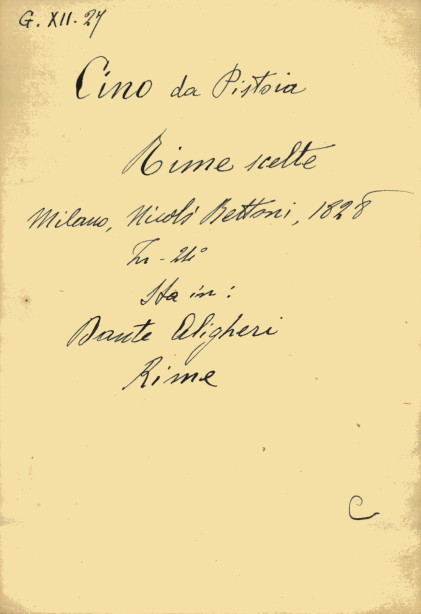 G. XII. 27
Cino da Pistoia
Rime scelte
Milano, Nicolò Bettoni, 1828
In-24°
Sta in:
Dante Aligheri
Rime
C